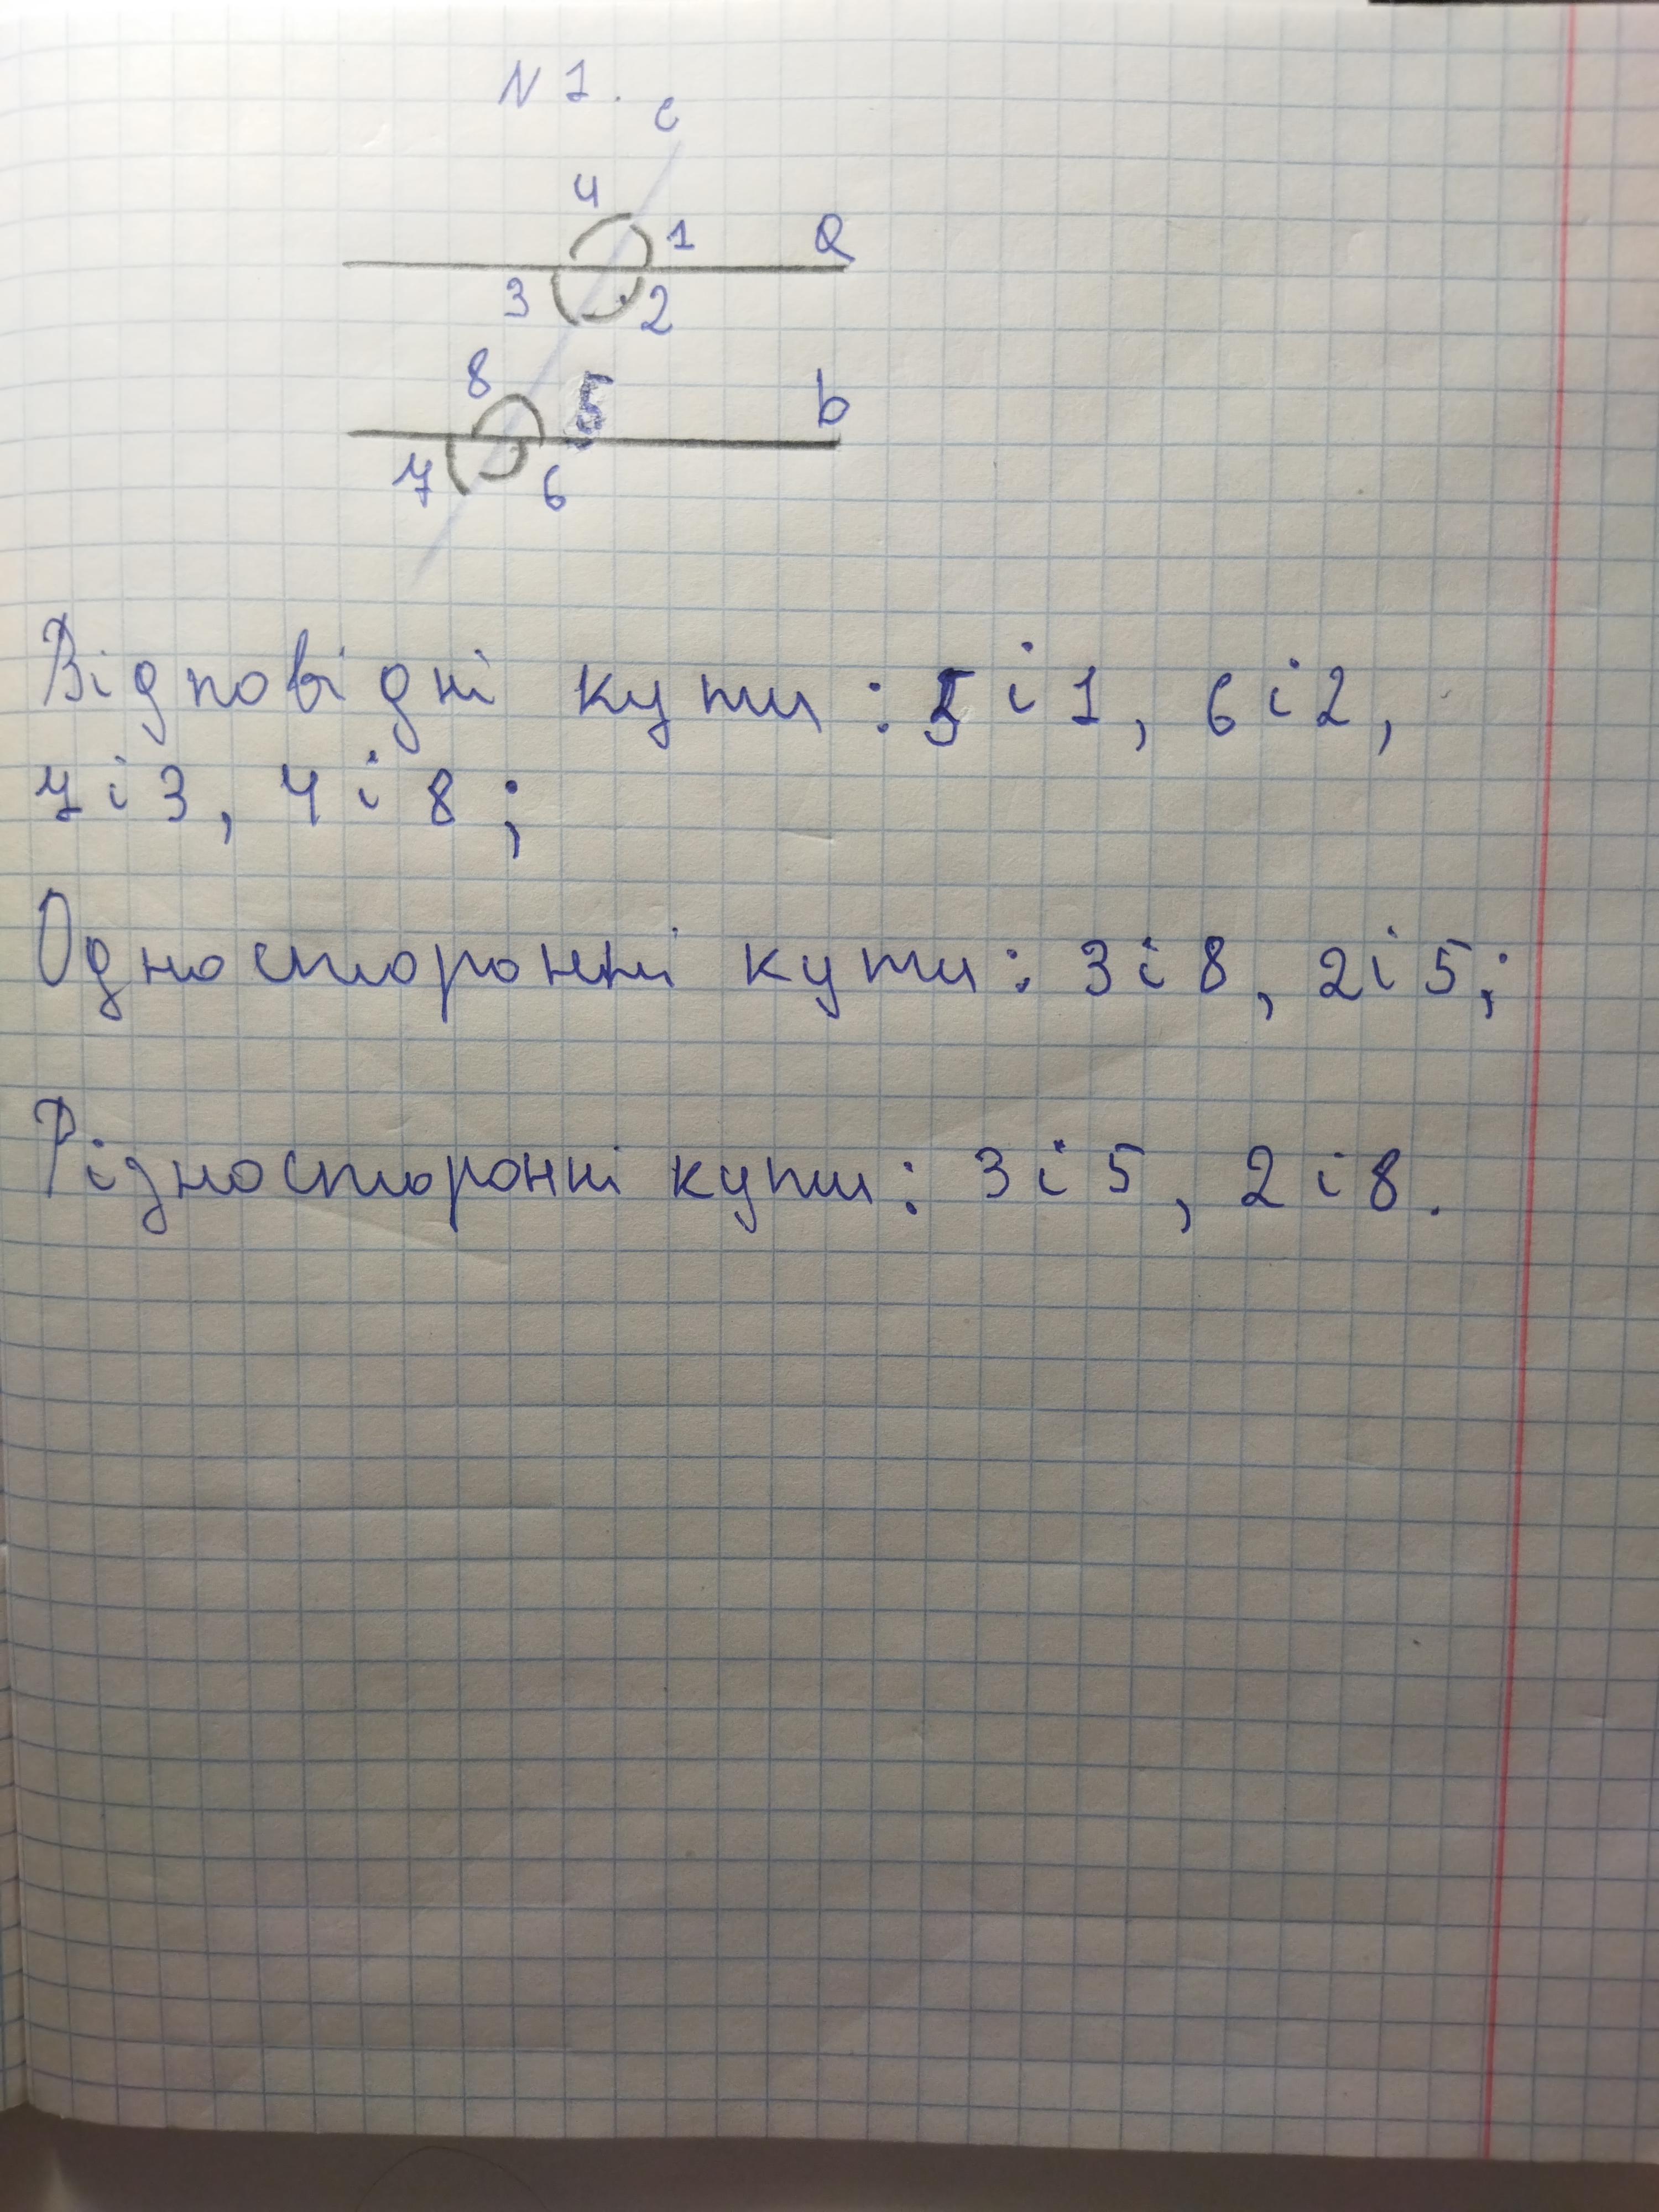 N 1.
c
4
1
a
3
2
8
5
b
7
6
Відповідні кути : 5 і 1, 6 і 2,
7 і 3, 4 і 8 ;
Односторонні кути : 3 і 8, 2 і 5;
Різносторонні кути : 3 і 5, 2 і 8.